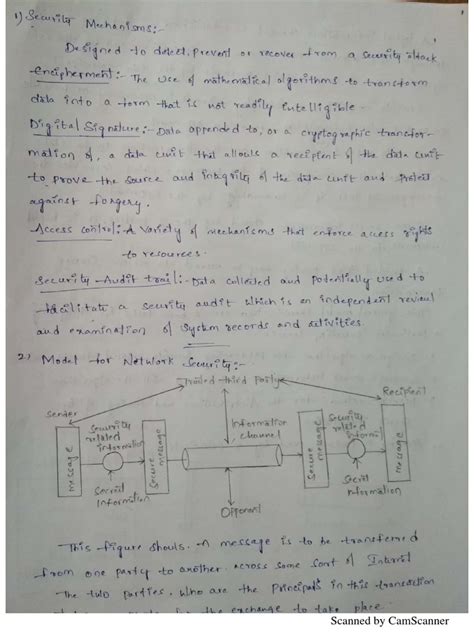 1) Security Mechanisms:-
Designed to detect, prevent or recover from a security attack
Encipherment:- The use of mathematical algorithms to transform
data into a form that is not readily intelligible.
Digital Signature:- Data appended to, or a cryptographic transfor-
mation of, a data unit that allows a recipient of the data unit
to prove the source and integrity of the data unit and protect
against forgery.
Access control:- A variety of mechanisms that enforce access rights
to resources.
Security Audit trail:- Data collected and potentially used to
facilitate a security audit which is an independent review
and examination of system records and activities.
2) Model for Network Security:-
Trusted third party
Sender
Recipient
Security related information
Information channel
Security related informati
message
Secure message
Secure message
message
Secret Information
Secret Information
Opponent
This figure shows. A message is to be transferred
from one party to another across some sort of Internet
The two parties, who are the principals in this transaction
for the exchange to take place.
Scanned by CamScanner